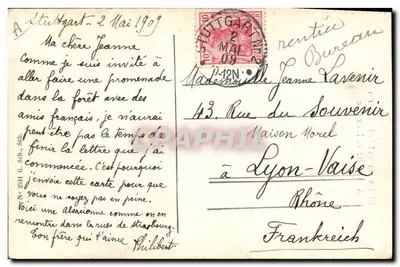 A
Stuttgart - 2 Mai 1909
Ma chère Jeanne
Comme je suis invité à
aller faire une promenade
dans la forêt avec des
amis français, je n'aurai
peut être pas le temps de
finir la lettre que j'ai
commencée. C'est pourquoi
j'envoie cette carte pour que
vous ne soyez pas en peine.
Voici une alsacienne comme on en
rencontre dans les rues de Strasbourg.
Ton frère qui t'aime Philibert
STUTTGART Nr. 2
2
MAI
09
rentrée
Bureau
Mademoiselle Jeanne Lavenir
43 Rue du Souvenir
Maison Morel
à Lyon-Vaise
Rhône
Frankreich